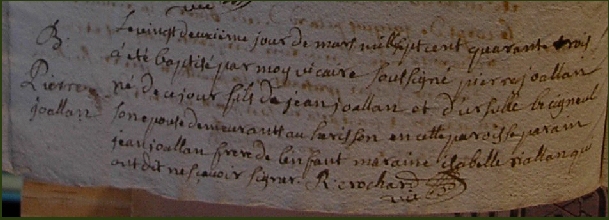 B.
Pierre
joallan
Le vingt deuxième jour de mars mil sept cent quarante trois
a été baptisé par moy vicaire soussigné pierre joallan
né de ce jour fils de jean joallan et d'ursulle
son epouse demeurants au herisson en cette paroisse parain
jean joallan frere de l'enfant maraine isabelle rialland qui
ont dit ne sçavoir signer. R. crochard
vic